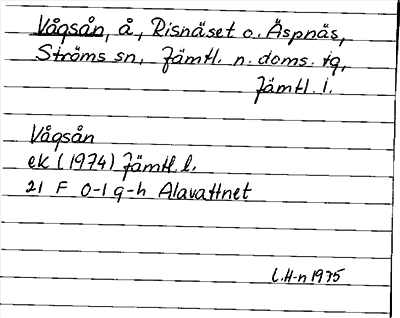 Vågsån, å, Risnäset o. Äspnäs,
Ströms sn, Jämtl. n. doms. tg,
Jämtl. l.
Vågsån
ek (1974) Jämtl. l.
21 F 0-1 g-h Alavattnet
L.H-n 1975